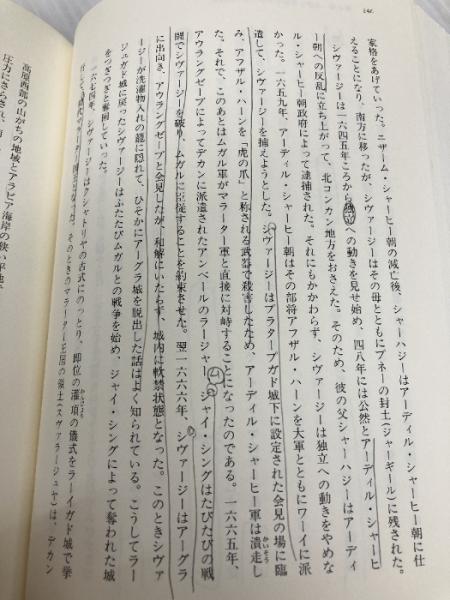 家格をあげていった。ニザーム・シャーヒー朝の滅亡後、シャーハジーはアーディル・シャーヒー朝に仕
えることになり、南方に移ったが、シヴァージーはその母とともにプネーの封土(ジャーギール)に残された。
シヴァージーは一六四五年ころから への動きを見せ始め、四八年には公然とアーディル・シャーヒ
ー朝への反乱に立ち上がって、北コンカン地方をおさえた。そのため、彼の父シャーハジーはアーディ
ル・シャーヒー朝政府によって逮捕された。それにもかかわらず、シヴァージーは独立への動きをやめな
かった。一六五九年、アーディル・シャーヒー朝はその部将アフザル・ハーンを大軍とともにワーイに派
遣して、シヴァージーを捕えようとした。シヴァージーはプラターブガド城下に設定された会見の場に臨
み、アフザル・ハーンを「虎の爪」と称される武器で殺害したため、アーディル・シャーヒー軍は潰走かいそうし
た。それで、このあとはムガル軍がマラーター軍と直接に対峙することになったのである。一六六五年、
アウラングゼーブによってデカンに派遣されたアンベールのラージャー、ジャイ・シングはたびたびの戦
闘でシヴァージーを破り、ムガルに臣従することを約束させた。翌一六六六年、シヴァージーはアーグラ
に出向き、アウラングゼーブと会見したが、和解にいたらず、城内に軟禁状態となった。このときシヴァ
ージーが洗濯物入れの籠に隠れて、ひそかにアーグラ城を脱出した話はよく知られている。こうしてラー
ジュガド城に戻ったシヴァージーはふたたびムガルとの戦争を始め、ジャイ・シングによって奪われた城
をつぎつぎと奪回していった。
一六七四年、シヴァージーはクシャトリヤの古式にのっとり、即位の灌頂かんじょうの儀式をラーイガド城で挙
そのときのマラーター王国の領土(スヴァラージュヤ)は、デカン
高原西部の山がちの地域とアラビア海岸の狭い平地
圧力にさらされ